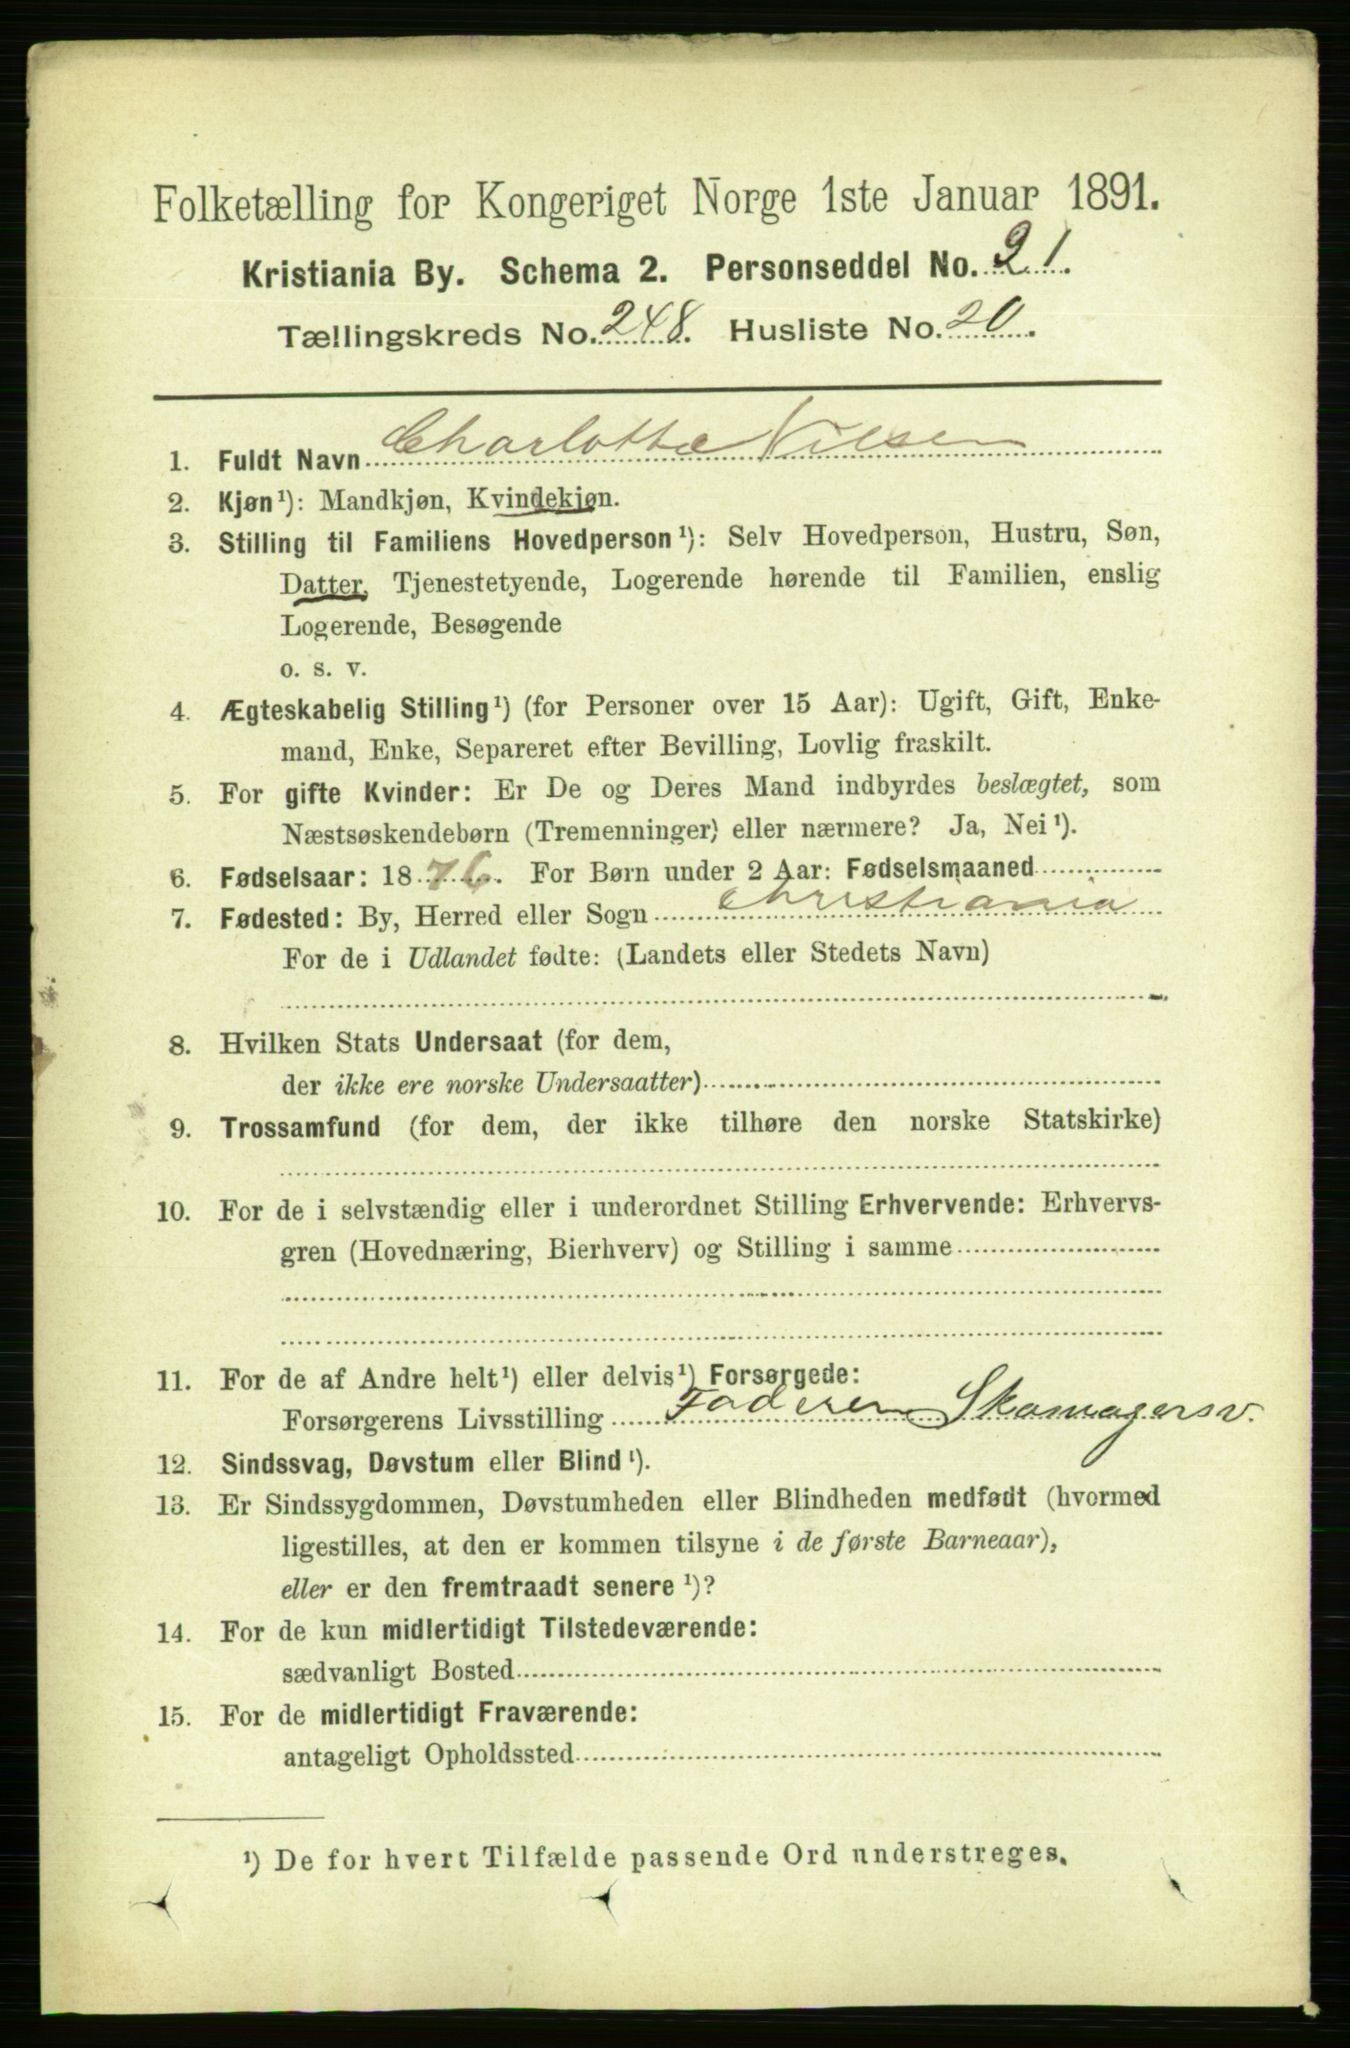 Folketælling for Kongeriget Norge 1ste Januar 1891.
Kristiania By. Schema 2. Personseddel No. 21.
Tællingskreds No. 248. Husliste No. 20.
1. Fuldt Navn Charlotte Nilsen
2. Kjøn¹): Mandkjøn, Kvindekjøn.
3. Stilling til Familiens Hovedperson¹): Selv Hovedperson, Hustru, Søn,
Datter, Tjenestetyende, Logerende hørende til Familien, enslig
Logerende, Besøgende
o. s. v.
4. Ægteskabelig Stilling¹) (for Personer over 15 Aar): Ugift, Gift, Enke-
mand, Enke, Separeret efter Bevilling, Lovlig fraskilt.
5. For gifte Kvinder: Er De og Deres Mand indbyrdes beslægtet, som
Næstsøskendebørn (Tremenninger) eller nærmere? Ja, Nei¹).
6. Fødselsaar: 1876. For Børn under 2 Aar: Fødselsmaaned
7. Fødested: By, Herred eller Sogn Christiania
For de i Udlandet fødte: (Landets eller Stedets Navn)
8. Hvilken Stats Undersaat (for dem,
der ikke ere norske Undersaatter)
9. Trossamfund (for dem, der ikke tilhøre den norske Statskirke)
10. For de i selvstændig eller i underordnet Stilling Erhvervende: Erhvervs-
gren (Hovednæring, Bierhverv) og Stilling i samme
11. For de af Andre helt¹) eller delvis¹) Forsørgede:
Forsørgerens Livsstilling Faderen Skomagersv.
12. Sindssvag, Døvstum eller Blind¹).
13. Er Sindssygdommen, Døvstumheden eller Blindheden medfødt (hvormed
ligestilles, at den er kommen tilsyne i de første Barneaar),
eller er den fremtraadt senere¹)?
14. For de kun midlertidigt Tilstedeværende:
sædvanligt Bosted
15. For de midlertidigt Fraværende:
antageligt Opholdssted
¹) De for hvert Tilfælde passende Ord understreges.